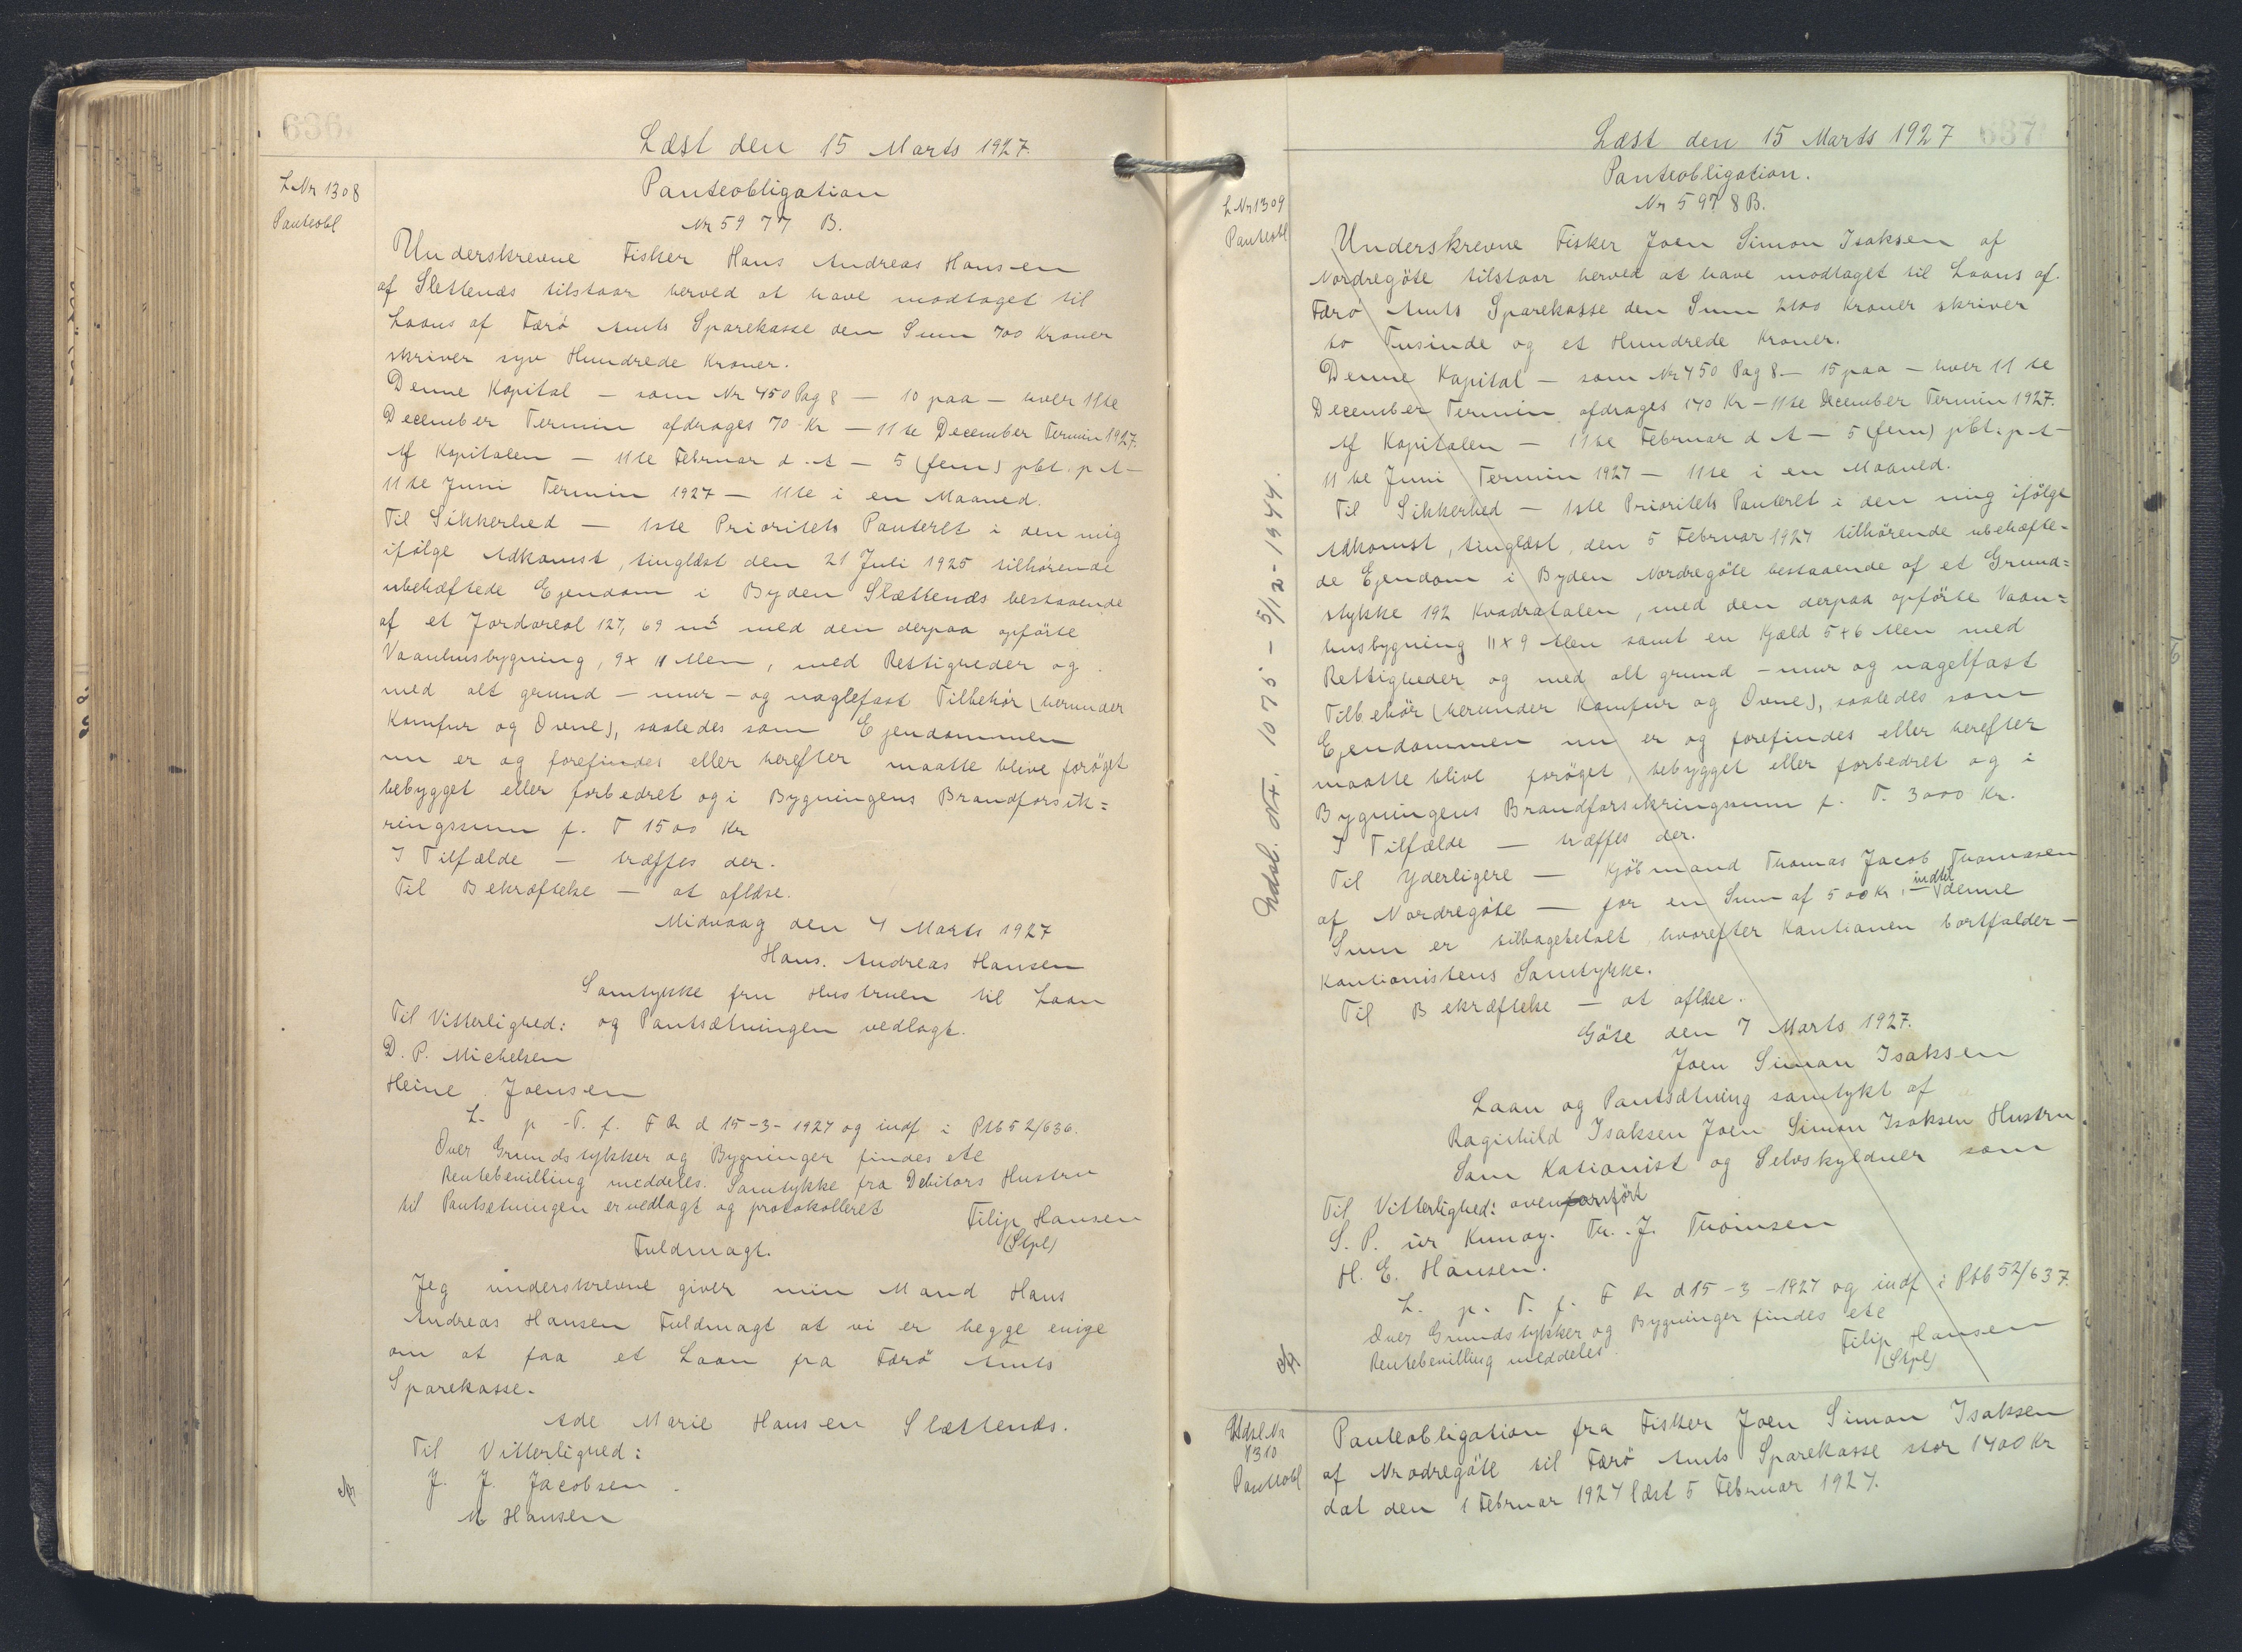 636.
Læst den 15 Marts 1927.
L Nr 1308
Panteobl
Panteobligation
Nr 5977 B.
Underskrevne Fisker Hans Andreas Hansen
af Slettenæs tilstaar herved at have modtaget til
Laans af Færö Amts Sparekasse den Sum 700 Kroner
skriver syv Hundrede Kroner.
Denne Kapital — som Nr 450 Pag 8 — 10 paa — hver 11te
December Termin afdrages 70 Kr — 11te December Termin 1927.
Af Kapitalen — 11te Februar d. A — 5 (fem) pbt. p A —
11te Juni Termin 1927 — 11te i en Maaned.
Til Sikkerhed — 1ste Prioritets Panteret i den mig
ifölge Adkomst, tinglæst den 21 Juli 1925 tilhörende
ubehæftede Ejendom i Byden Slættenæs bestaaende
af et Jordareal 127,69 m² med den derpaa opförte
Vaanhusbygning, 9 x 11 Alen, med Rettigheder og
med alt grund – mur – og naglefast Tilbehör (herunder
Komfur og Ovne), saaledes som Ejendommen
nu er og forefindes eller herefter maatte blive foröget
bebygget eller forbedret og i Bygningens Brandforsik=
ringssum f. T 1500 Kr
I Tilfælde — træffes der.
Til Bekræftelse — at aflæse.
Midvaag den 4 Marts 1927
Hans. Andreas Hansen
Samtykke fru Hustruen til Laan
Til Vitterlighed: og Pantsætningen vedlagt.
D. P. Michelsen
Heine Joensen
L. p - T. f. F R d 15-3-1927 og indf i Ptb 52/636.
Over Grundstykker og Bygninger findes ete
Rentebevilling meddeles. Samtykke fra Debitors Hustru
til Pantsetningen er vedlagt og protokolleret
Filip Hansen
(Stpl)
Fuldmagt.
Jeg underskrevne giver min Mand Hans
Andreas Hansen Fuldmagt at vi er begge enige
om at faa et Laan fra Færö Amts
Sparekasse.
Ade Marie Hansen Slættenæs.
Til Vitterlighed:
J. J. Jacobsen
M Hansen
637
Læst den 15 Marts 1927
L Nr 1309
Panteobl
Panteobligation.
Nr 5978 B.
Underskrevne Fisker Joen Simon Isaksen af
Nordregöte tilstaar herved at have modtaget til Laans af
Færö Amts Sparekasse den Sum 2100 Kroner skriver
to Tusinde og et Hundrede Kroner.
Denne Kapital — som Nr 450 Pag 8 — 15 paa — hver 11te
December Termin afdrages 140 Kr — 11te December Termin 1927.
Af Kapitalen — 11te Februar d A — 5 (fem) pbt. p A —
11te Juni Termin 1927 — 11te i en Maaned.
Til Sikkerhed — 1ste Prioritets Panteret i den mig ifölge
Adkomst, tinglæst, den 5 Februar 1927 tilhörende ubehæfte-
de Ejendom i Byden Nordregöte bestaaende af et Grund=
stykke 192 Kvadratalen, med den derpaa opförte Vaan=
husbygning 11 x 9 Alen samt en Kjæld 5 x 6 Alen med
Rettigheder og med alt grund – mur og nagelfast
Tilbehör (herunder Komfur og Ovne), saaledes som
Ejendommen nu er og forefindes eller herefter
maatte blive foröget, bebygget eller forbedret og i
Bygningens Brandforsikringssum f. T. 3000 Kr.
I Tilfælde — træffes der.
Til Yderligere — Kjöbmand Thomas Jacob Thomasen
af Nordregöte — for en Sum af 500 Kr, — indtil denne
Sum er tilbagebetalt, hvorefter Kautionen bortfalder —
Kautionistens Samtykke.
Til Bekræftelse — at aflæse.
Göte den 7 Marts 1927.
Joen Simon Isaksen
Laan og Pantsætning samtykt af
Ragnhild Isaksen Joen Simon Isaksen Hustru
Som Kationist og Selvskyldner som
Til Vitterlighed: ovenanfört
S. P. úr Kunoy. Th. J. Thomsen
H. E. Hansen.
L. p. T. f. F R d 15-3-1927 og indf i Ptb 52/637.
Over Grundstykker og Bygninger findes ete
Rentebevilling meddeles.
Filip Hansen
(Stpl)
Udsl. Nr. 1075 – 5/12-1944.
Udsl. Nr
1310
Panteobl
Panteobligation fra Fisker Joen Simon Isaksen
af Nrodregöte til Færö Amts Sparekasse stor 1400 Kr
dat den 1 Februar 1927 læst 5 Februar 1927.